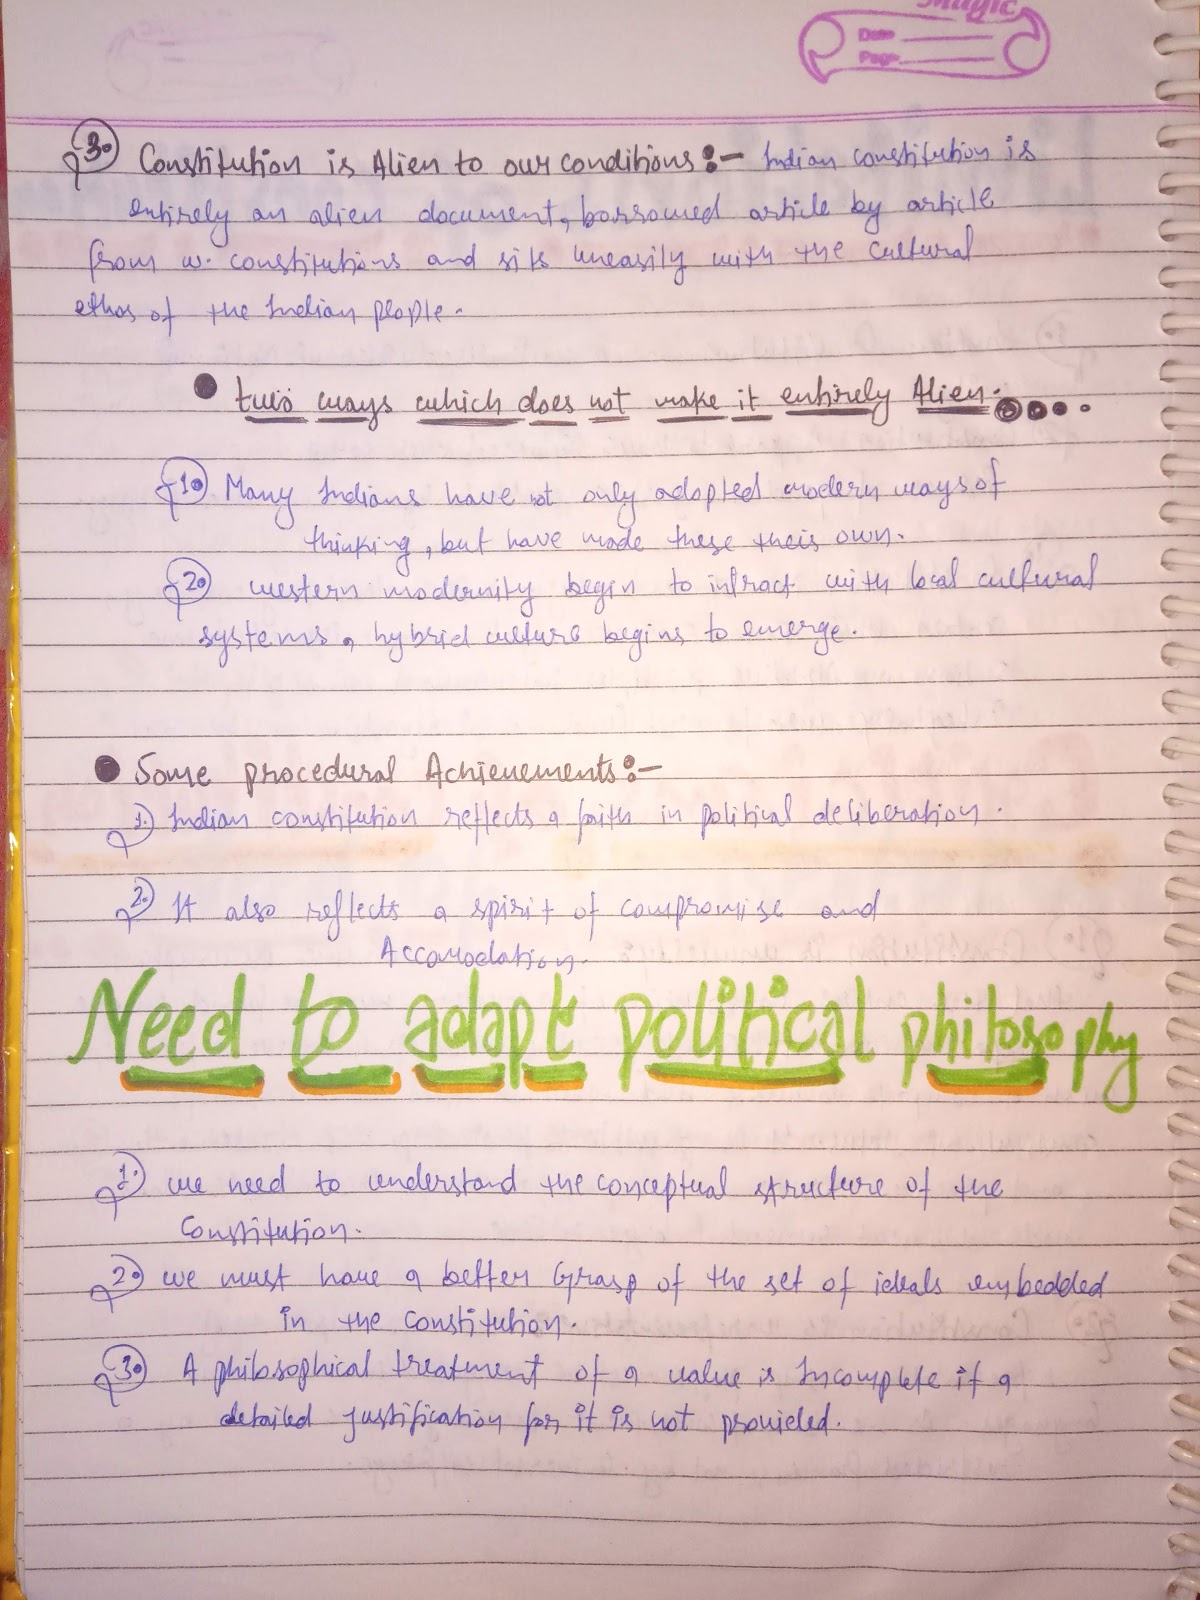 Magic
Date
Page
3. Constitution is Alien to our conditions:- Indian constitution is
entirely an alien document, borrowed article by article
from w. constitutions and sits uneasily with the cultural
ethos of the Indian people.
• two ways which does not make it entirely Alien.
1. Many Indians have not only adopted modern ways of
thinking, but have made these their own.
2. western modernity begin to intract with local cultural
systems, hybrid culture begins to emerge.
• Some procedural Achievements:-
1. Indian constitution reflects a faith in political deliberation.
2. It also reflects a spirit of compromise and
Accomodation.
Need to adapt political philosophy
1. we need to understand the conceptual structure of the
Constitution.
2. we must have a better Grasp of the set of ideals embedded
in the constitution.
3. A philosophical treatment of a value is Incomplete if a
detailed justification for it is not provided.